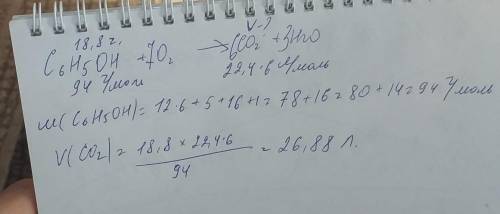 18,8 г. V-?
C₆H₅OH + 7O₂ → 6CO₂ + 3H₂O
94 г/моль 22,4·6 л/моль
м(C₆H₅OH) = 12·6 + 5 + 16 + 1 = 78 + 16 = 80 + 14 = 94 г/моль
V(CO₂) = 18,8 × 22,4·6 / 94 = 26,88 л.